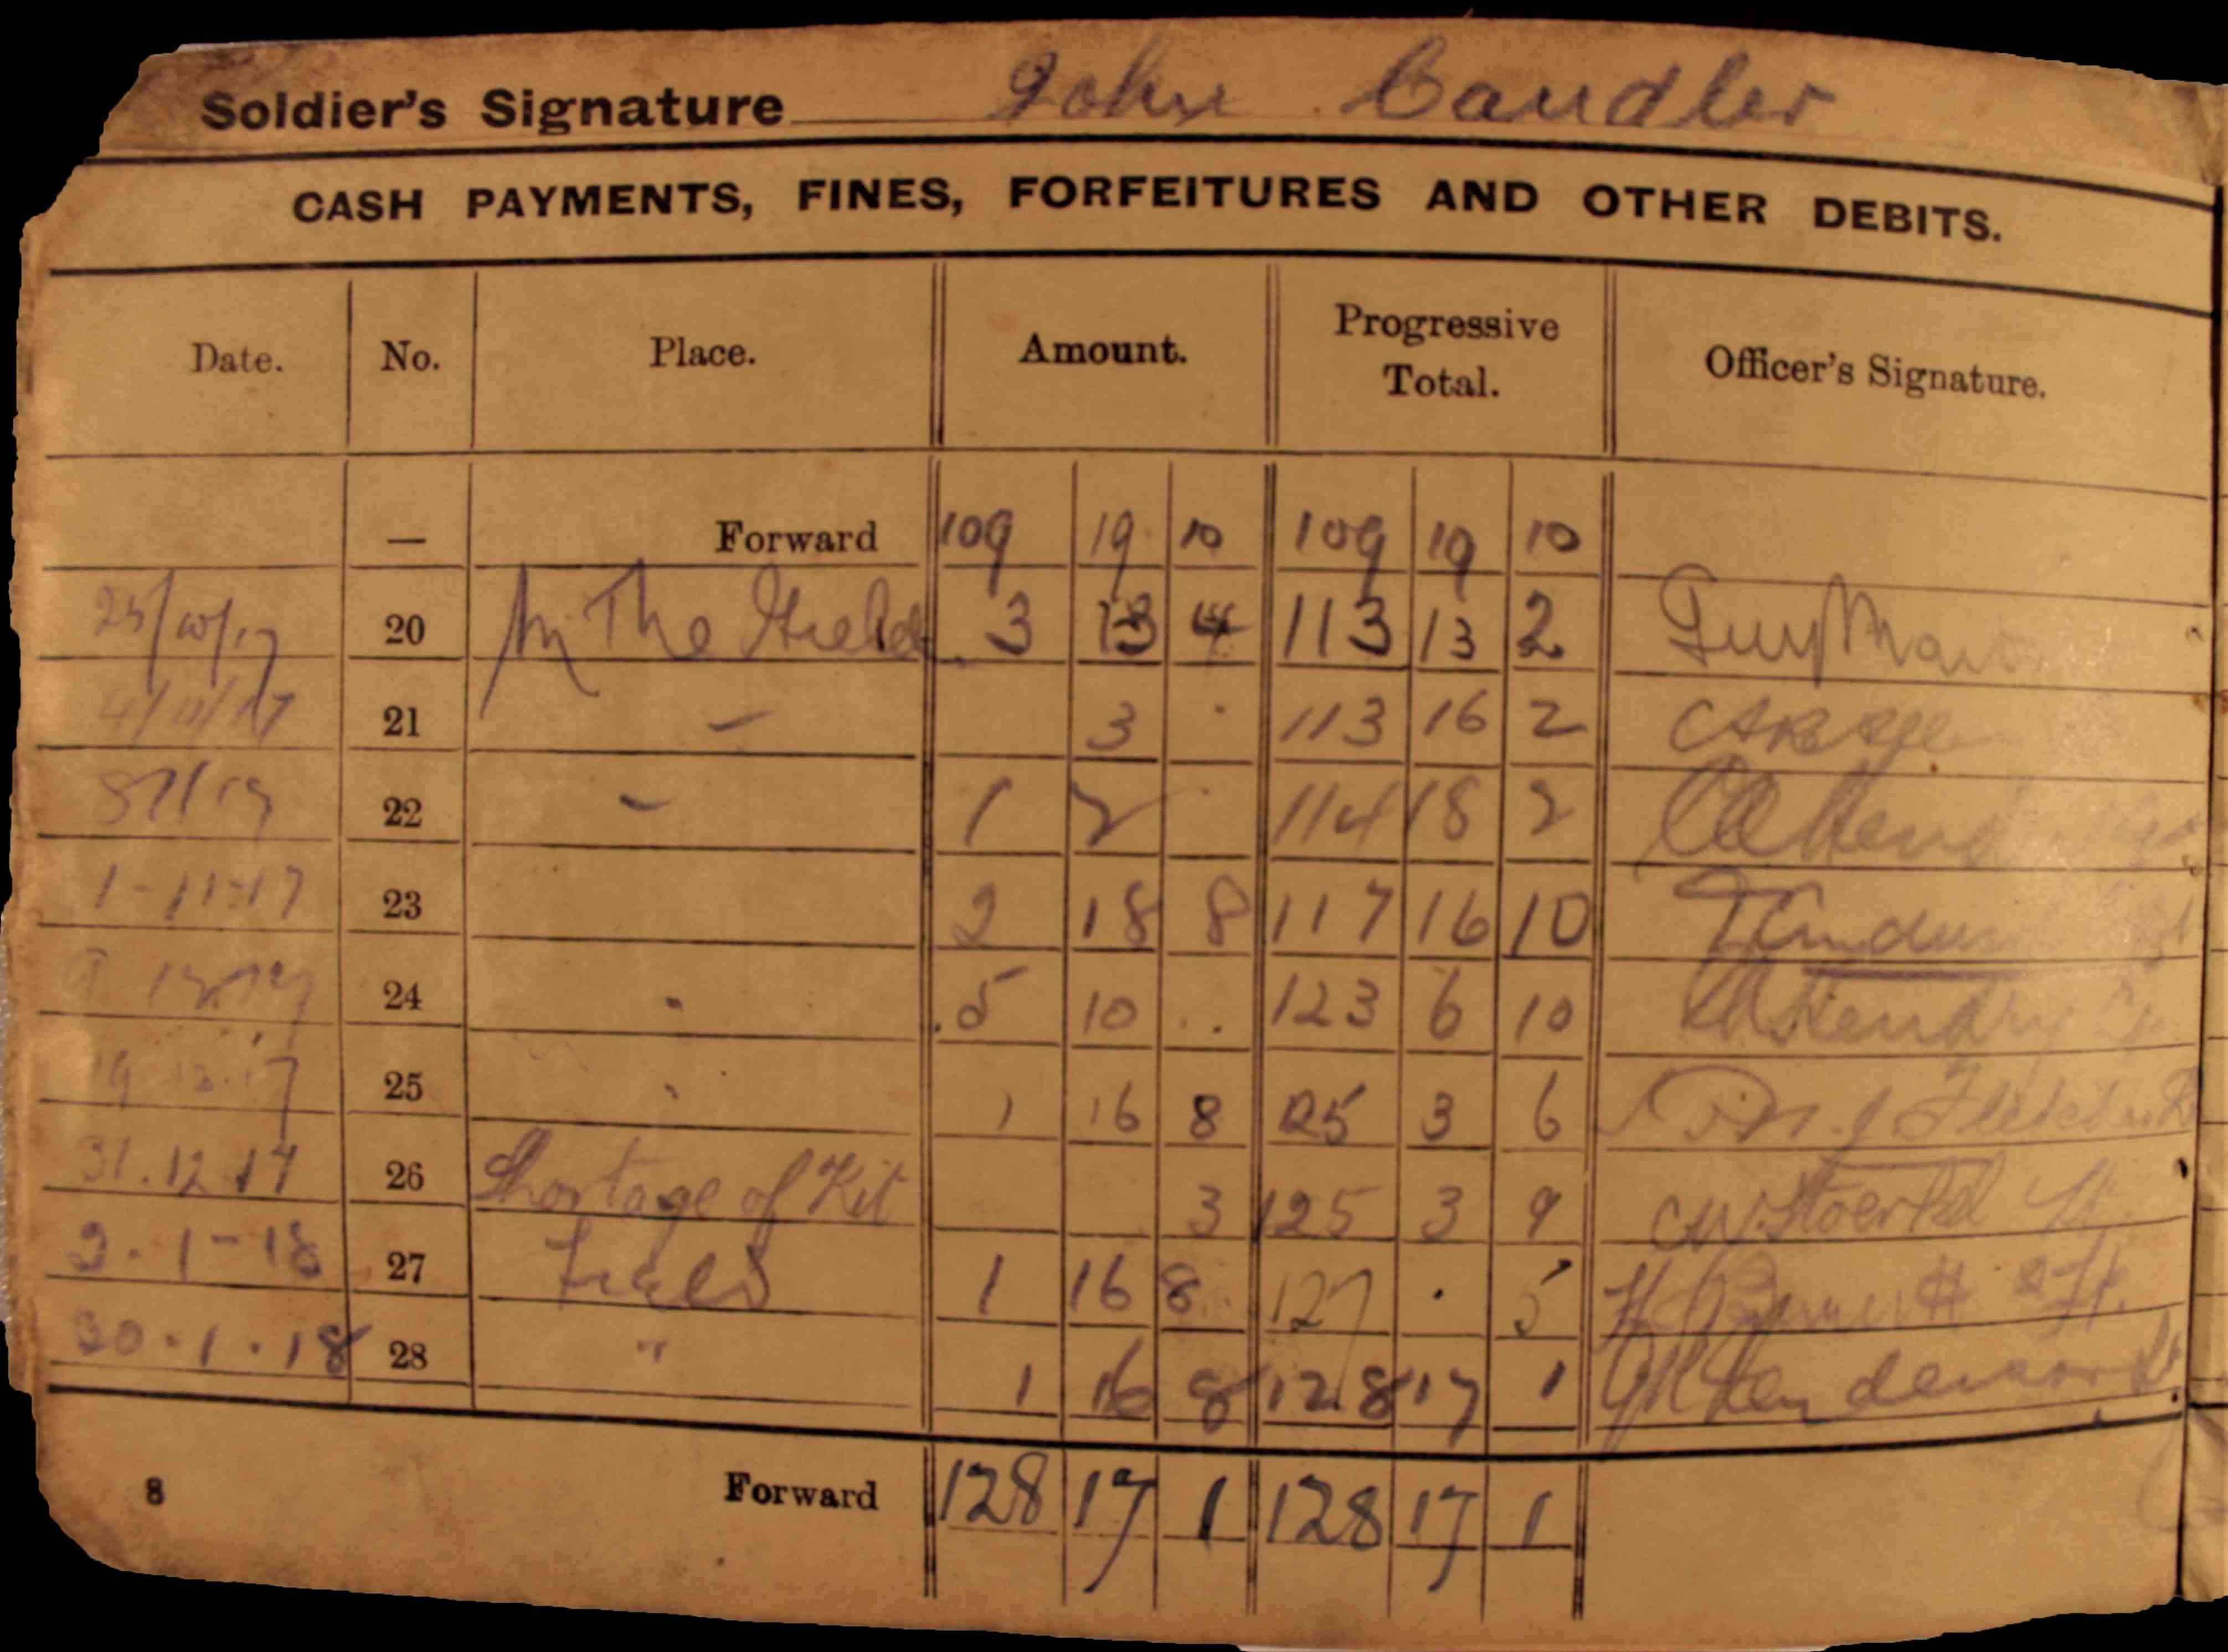 Soldier's Signature John Candler
CASH PAYMENTS, FINES, FORFEITURES AND OTHER DEBITS.
Date. No. Place. Amount. Progressive Total. Officer's Signature.
— Forward 109 19 10 109 19 10
25/10/17 20 In The Field 3 13 4 113 13 2 Guy
4/11/17 21 – 3 · 113 16 2
22 – 1 2 · 114 18 2
1-11-17 23 2 18 8 117 16 10
24 " 5 10 .. 123 6 10 Hendry
19.12.17 25 " 1 16 8 125 3 6 Fletcher
31.12.17 26 Shortage of Kit 3 125 3 9
2.1-18 27 Field 1 16 8 127 · 5 Lt.
30.1.18 28 " 1 16 8 128 17 1 Henderson Lt.
8 Forward 128 17 1 128 17 1